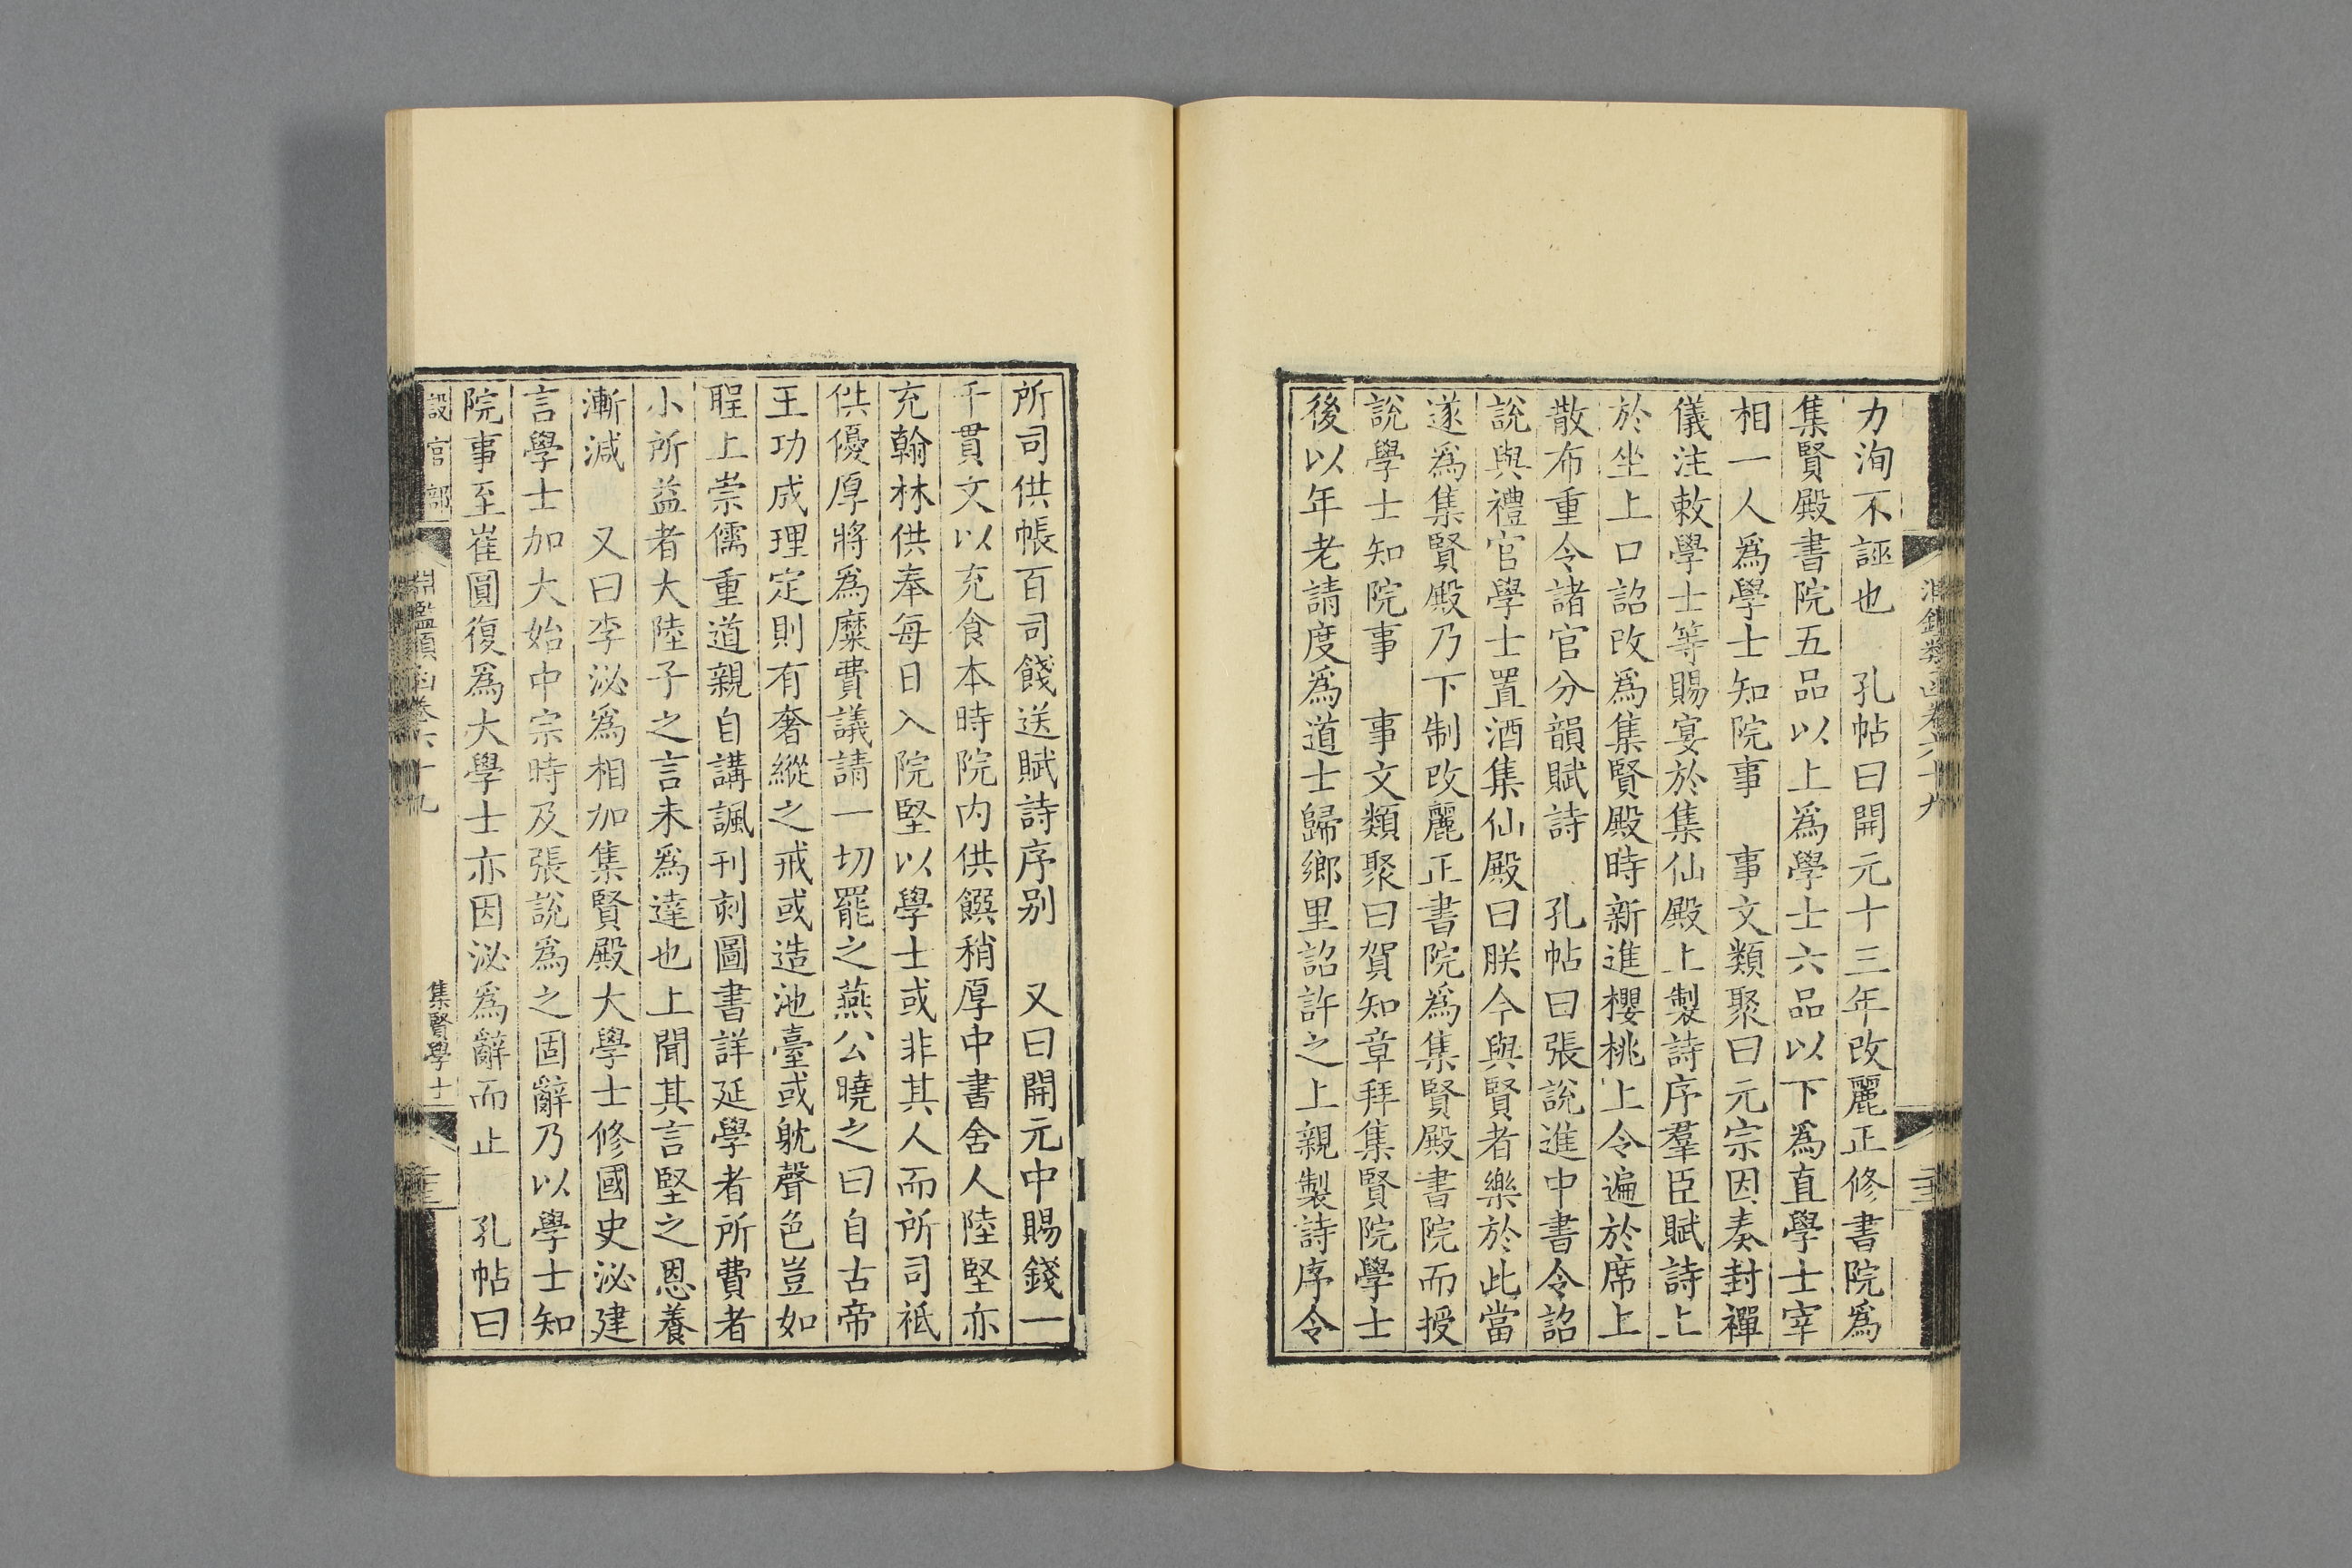 力洵不誣也 孔帖曰開元十三年改麗正修書院爲
集賢殿書院五品以上爲學士六品以下爲直學士宰
相一人爲學士知院事 事文類聚曰元宗因奏封禪
儀注敕學士等賜宴於集仙殿上製詩序羣臣賦詩上
於坐上口詔改爲集賢殿時新進櫻桃上令遍於席上
散布重令諸官分韻賦詩 孔帖曰張說進中書令詔
說與禮官學士置酒集仙殿曰朕今與賢者樂於此當
遂爲集賢殿乃下制改麗正書院爲集賢殿書院而授
說學士知院事 事文類聚曰賀知章拜集賢院學士
後以年老請度爲道士歸鄉里詔許之上親製詩序令
所司供帳百司餞送賦詩序别 又曰開元中賜錢一
千貫文以充食本時院内供饌稍厚中書舍人陸堅亦
充翰林供奉每日入院堅以學士或非其人而所司祗
供優厚將爲糜費議請一切罷之燕公曉之曰自古帝
王功成理定則有奢縱之戒或造池臺或躭聲色豈如
聖上崇儒重道親自講諷刊刻圖書詳延學者所費者
小所益者大陸子之言未爲達也上聞其言堅之恩養
漸減 又曰李泌爲相加集賢殿大學士修國史泌建
言學士加大始中宗時及張說爲之固辭乃以學士知
院事至崔圓復爲大學士亦因泌爲辭而止 孔帖曰
設官部 淵鑑類函卷六十九 集賢學士